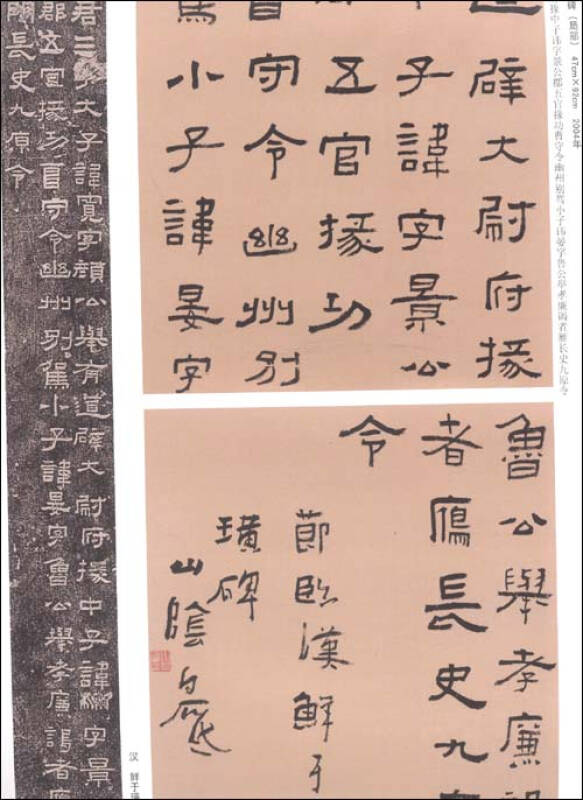 碑（局部） 47cm×92cm 2004年
掾中子讳字景公郡五官掾功曹守令幽州别驾小子讳晏字鲁公举孝廉谒者雁长史九原令
辟大尉府掾
子諱字景公
五官掾功
守令幽州别
小子諱晏字
魯公舉孝廉
者鴈長史九
令
節臨漢鮮于
璜碑
山陰白砥
君三子大子諱寬字顏公舉有道辟大尉府掾中子諱字景
郡五官掾功曹守令幽州别駕小子諱晏字魯公舉孝廉謁者鴈
門長史九原令
汉 鲜于